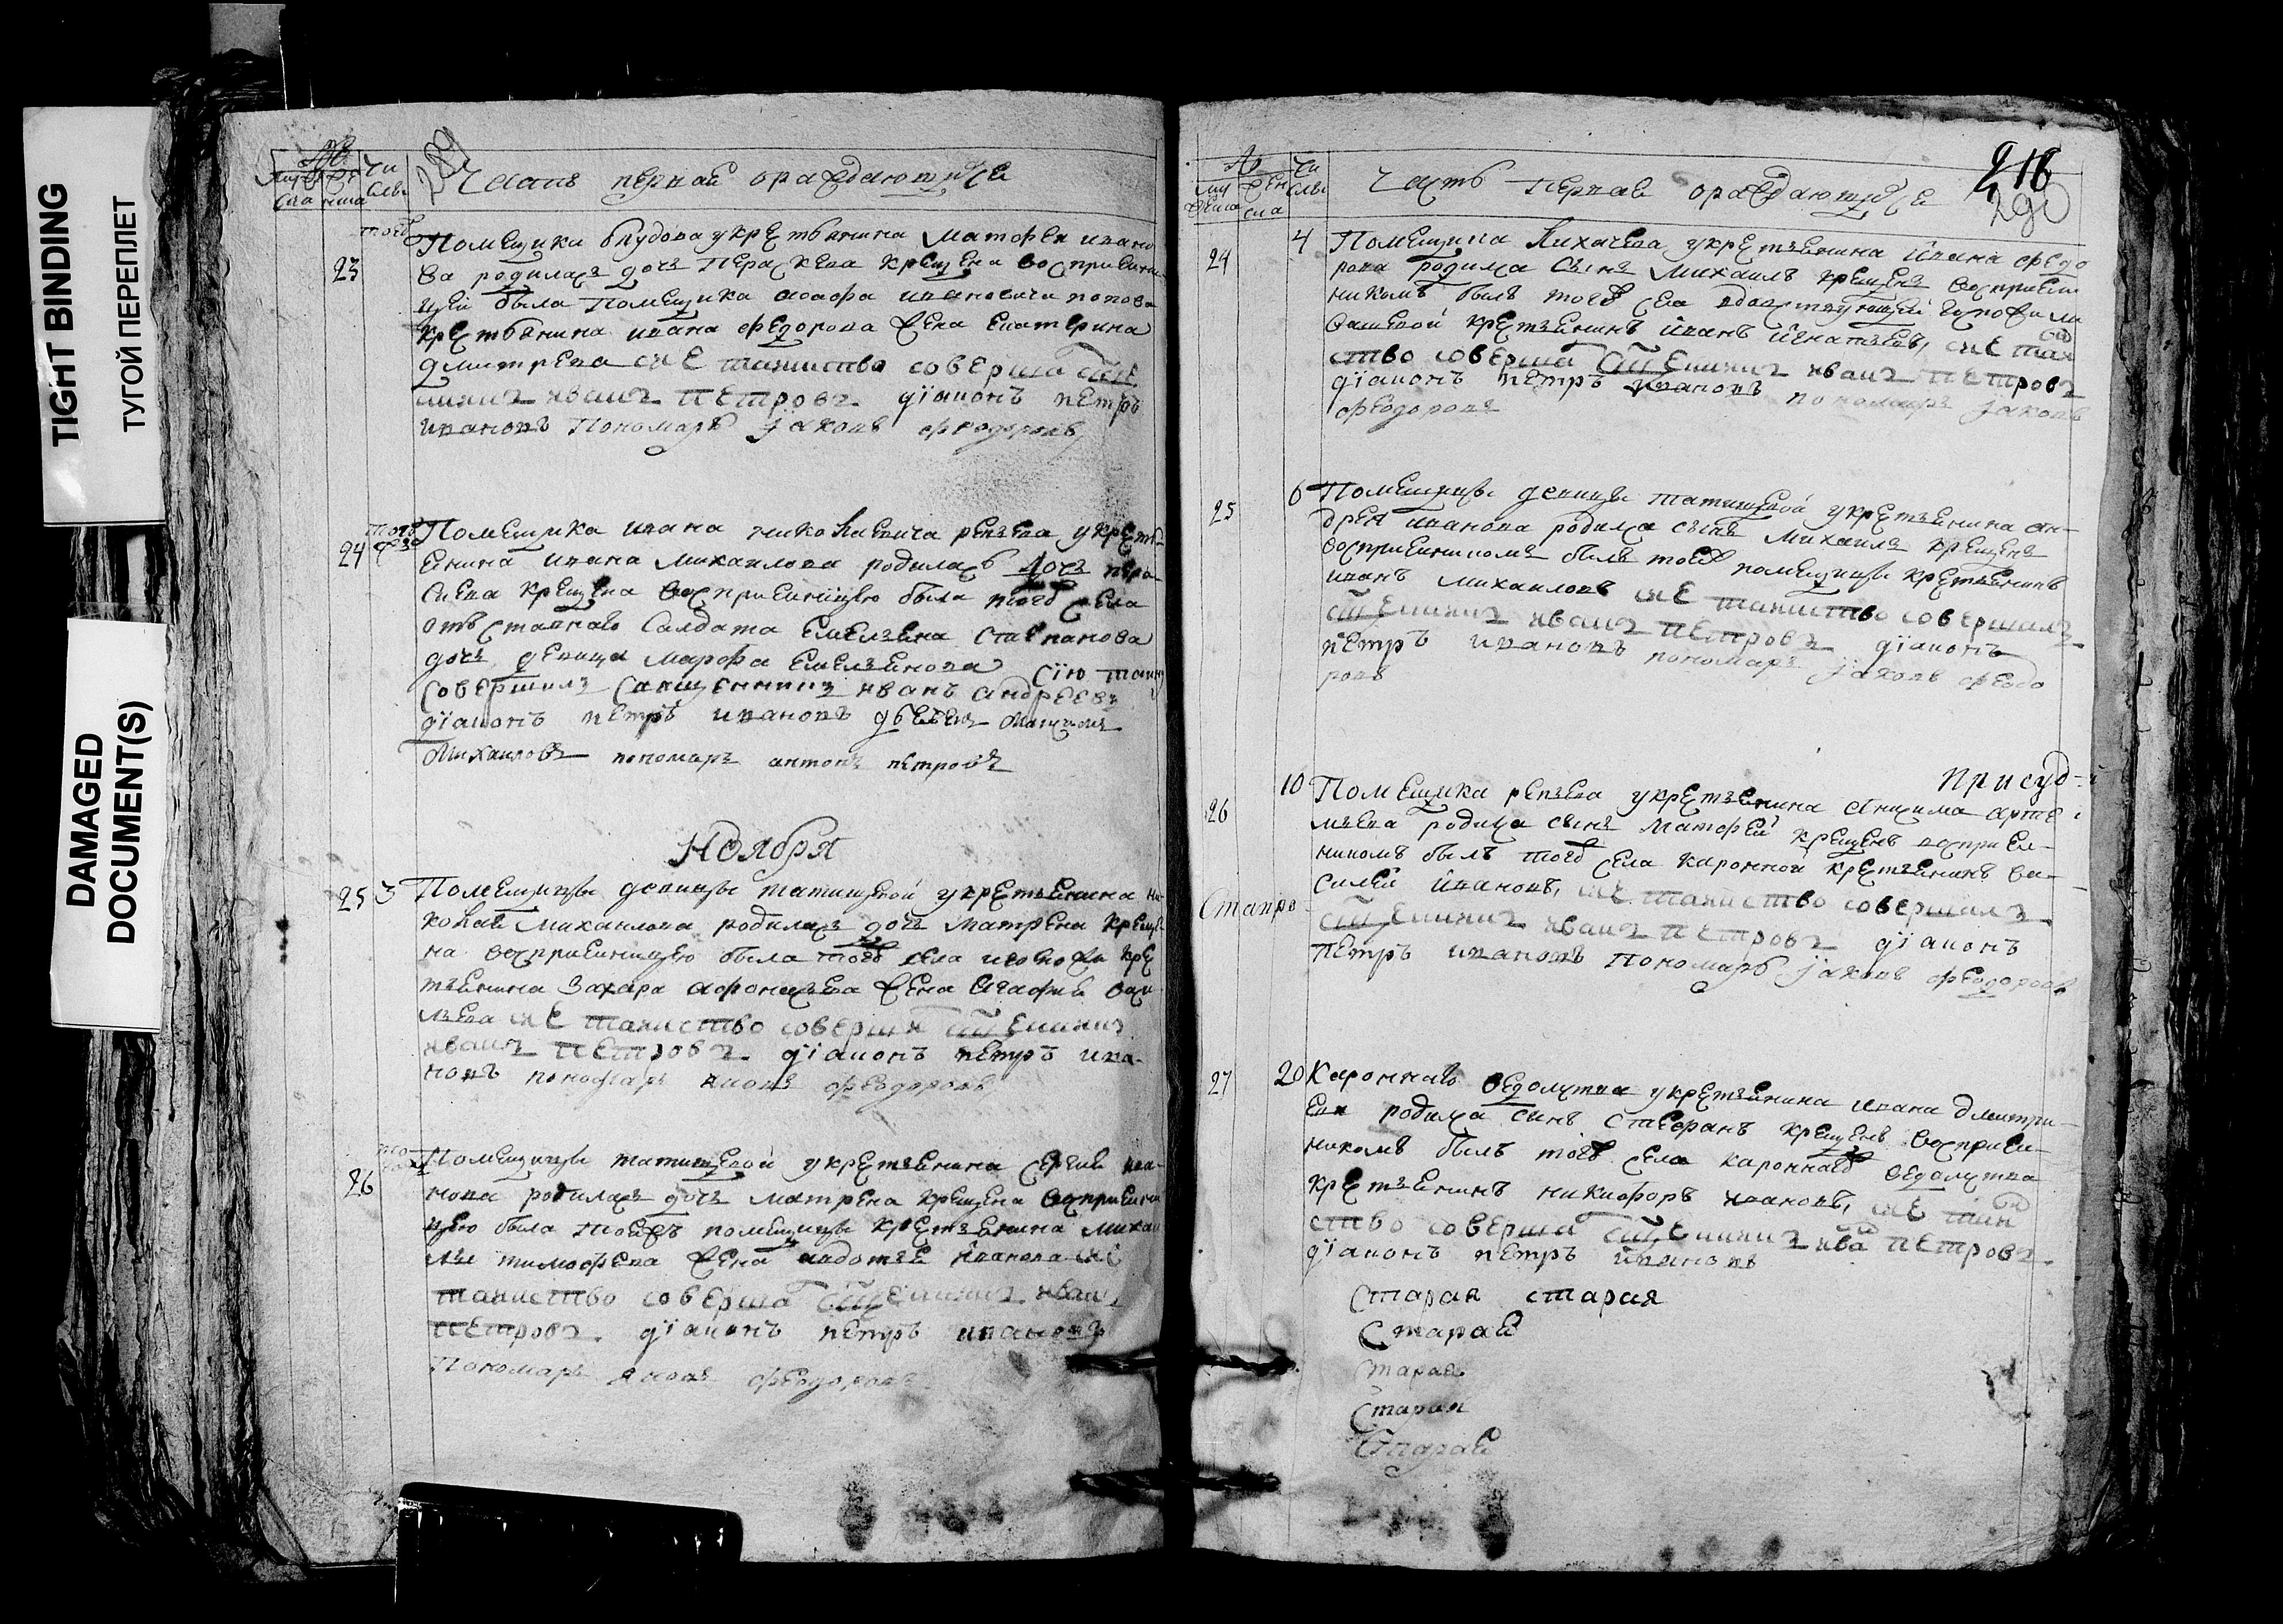 TIGHT BINDING
ТУГОЙ ПЕРЕПЛЕТ
DAMAGED
DOCUMENT(S)
Часть первая о раждающихся
23
Помещика Блудова у крестьянина Матфея Ивано
ва родилась дочь Параскева крещена восприемни
цей была Помещика Иванова
крестьянина Ивана Федорова жена Екатерина
Дмитрева сие таинство соверша священник
Иванъ Петровъ діаконъ Петръ
Ивановъ Пономарь Іаковъ Феодоровъ
24
Помещика Ивана Николаевича Ревзева у кресть
енина Ивана Михаилова родилась дочь Пара
скева крещена восприемницею была тогож села
отставнаго салдата Емельяна Степанова
дочь девица Марфа Емельянова сію таин
совершилъ священникъ Иванъ Андреевъ
діаконъ Петръ Ивановъ
Михаиловъ пономарь Антонъ Петровъ
Ноября
25 3 Помещицы девицы Татищевой у крестьянина Ни
колая Михаилова родилась дочь Матрена креще
на восприемницею была тогож села кре
стьянина Захара Афонасьева жена Агафья Васи
льева сие таинство соверши священникъ
Иванъ Петровъ діаконъ Петръ Ива
новъ пономарь Яковъ Феодоровъ
26
Помещицы Татищевой у крестьянина Сергея Ива
нова родилась дочь Матрена крещена восприемни
цею была тоежъ помещицы крестьянина Михаи
лы Тимофеева жена Авдотья Иванова сие
таинство соверша священникъ Иванъ
Петровъ діаконъ Петръ Ивановъ
Пономарь Яковъ Феодоровъ
Часть первая о раждающихся
216
290
24 4 Помещика Лихачева у крестьянина Ивана Федо
рова родился сынъ Михаилъ крещенъ восприем
никомъ былъ тогож села
крестьянинъ Иванъ Игнатьевъ, сие таин
ство соверша священникъ Иванъ Петровъ
діаконъ Петръ Ивановъ пономарь Іаковъ
Феодоровъ
25 6 Помещицы девицы Татищевой у крестьянина Ан
дрея Иванова родился сынъ Михаилъ крещенъ
восприемникомъ былъ тоеж помещицы крестьянинъ
Иванъ Михаиловъ сие таинство совершилъ
священникъ Иванъ Петровъ діаконъ
Петръ Ивановъ пономарь Іаковъ Феодо
ровъ
Присуд
26 10 Помещика Ревзева у крестьянина Анцима Арте
мьева родился сынъ Матфей крещенъ восприем
никомъ былъ тогож села каронной крестьянинъ Ва
силей Ивановъ, сие таинство совершилъ
Стапро
священникъ Иванъ Петровъ діаконъ
Петръ Ивановъ Пономарь Іаковъ Феодоровъ
27 20 Кароннаго ведомства у крестьянина Ивана Дмитри
ева родился сынъ Стефанъ крещенъ восприем
никомъ былъ тогож села кароннаго ведомства
крестьянинъ Никифоръ Ивановъ, сие таин
ство соверша священникъ Ива Петровъ
діаконъ Петръ Ивановъ
Старая старая
Старая
Старая
Старая
Старая